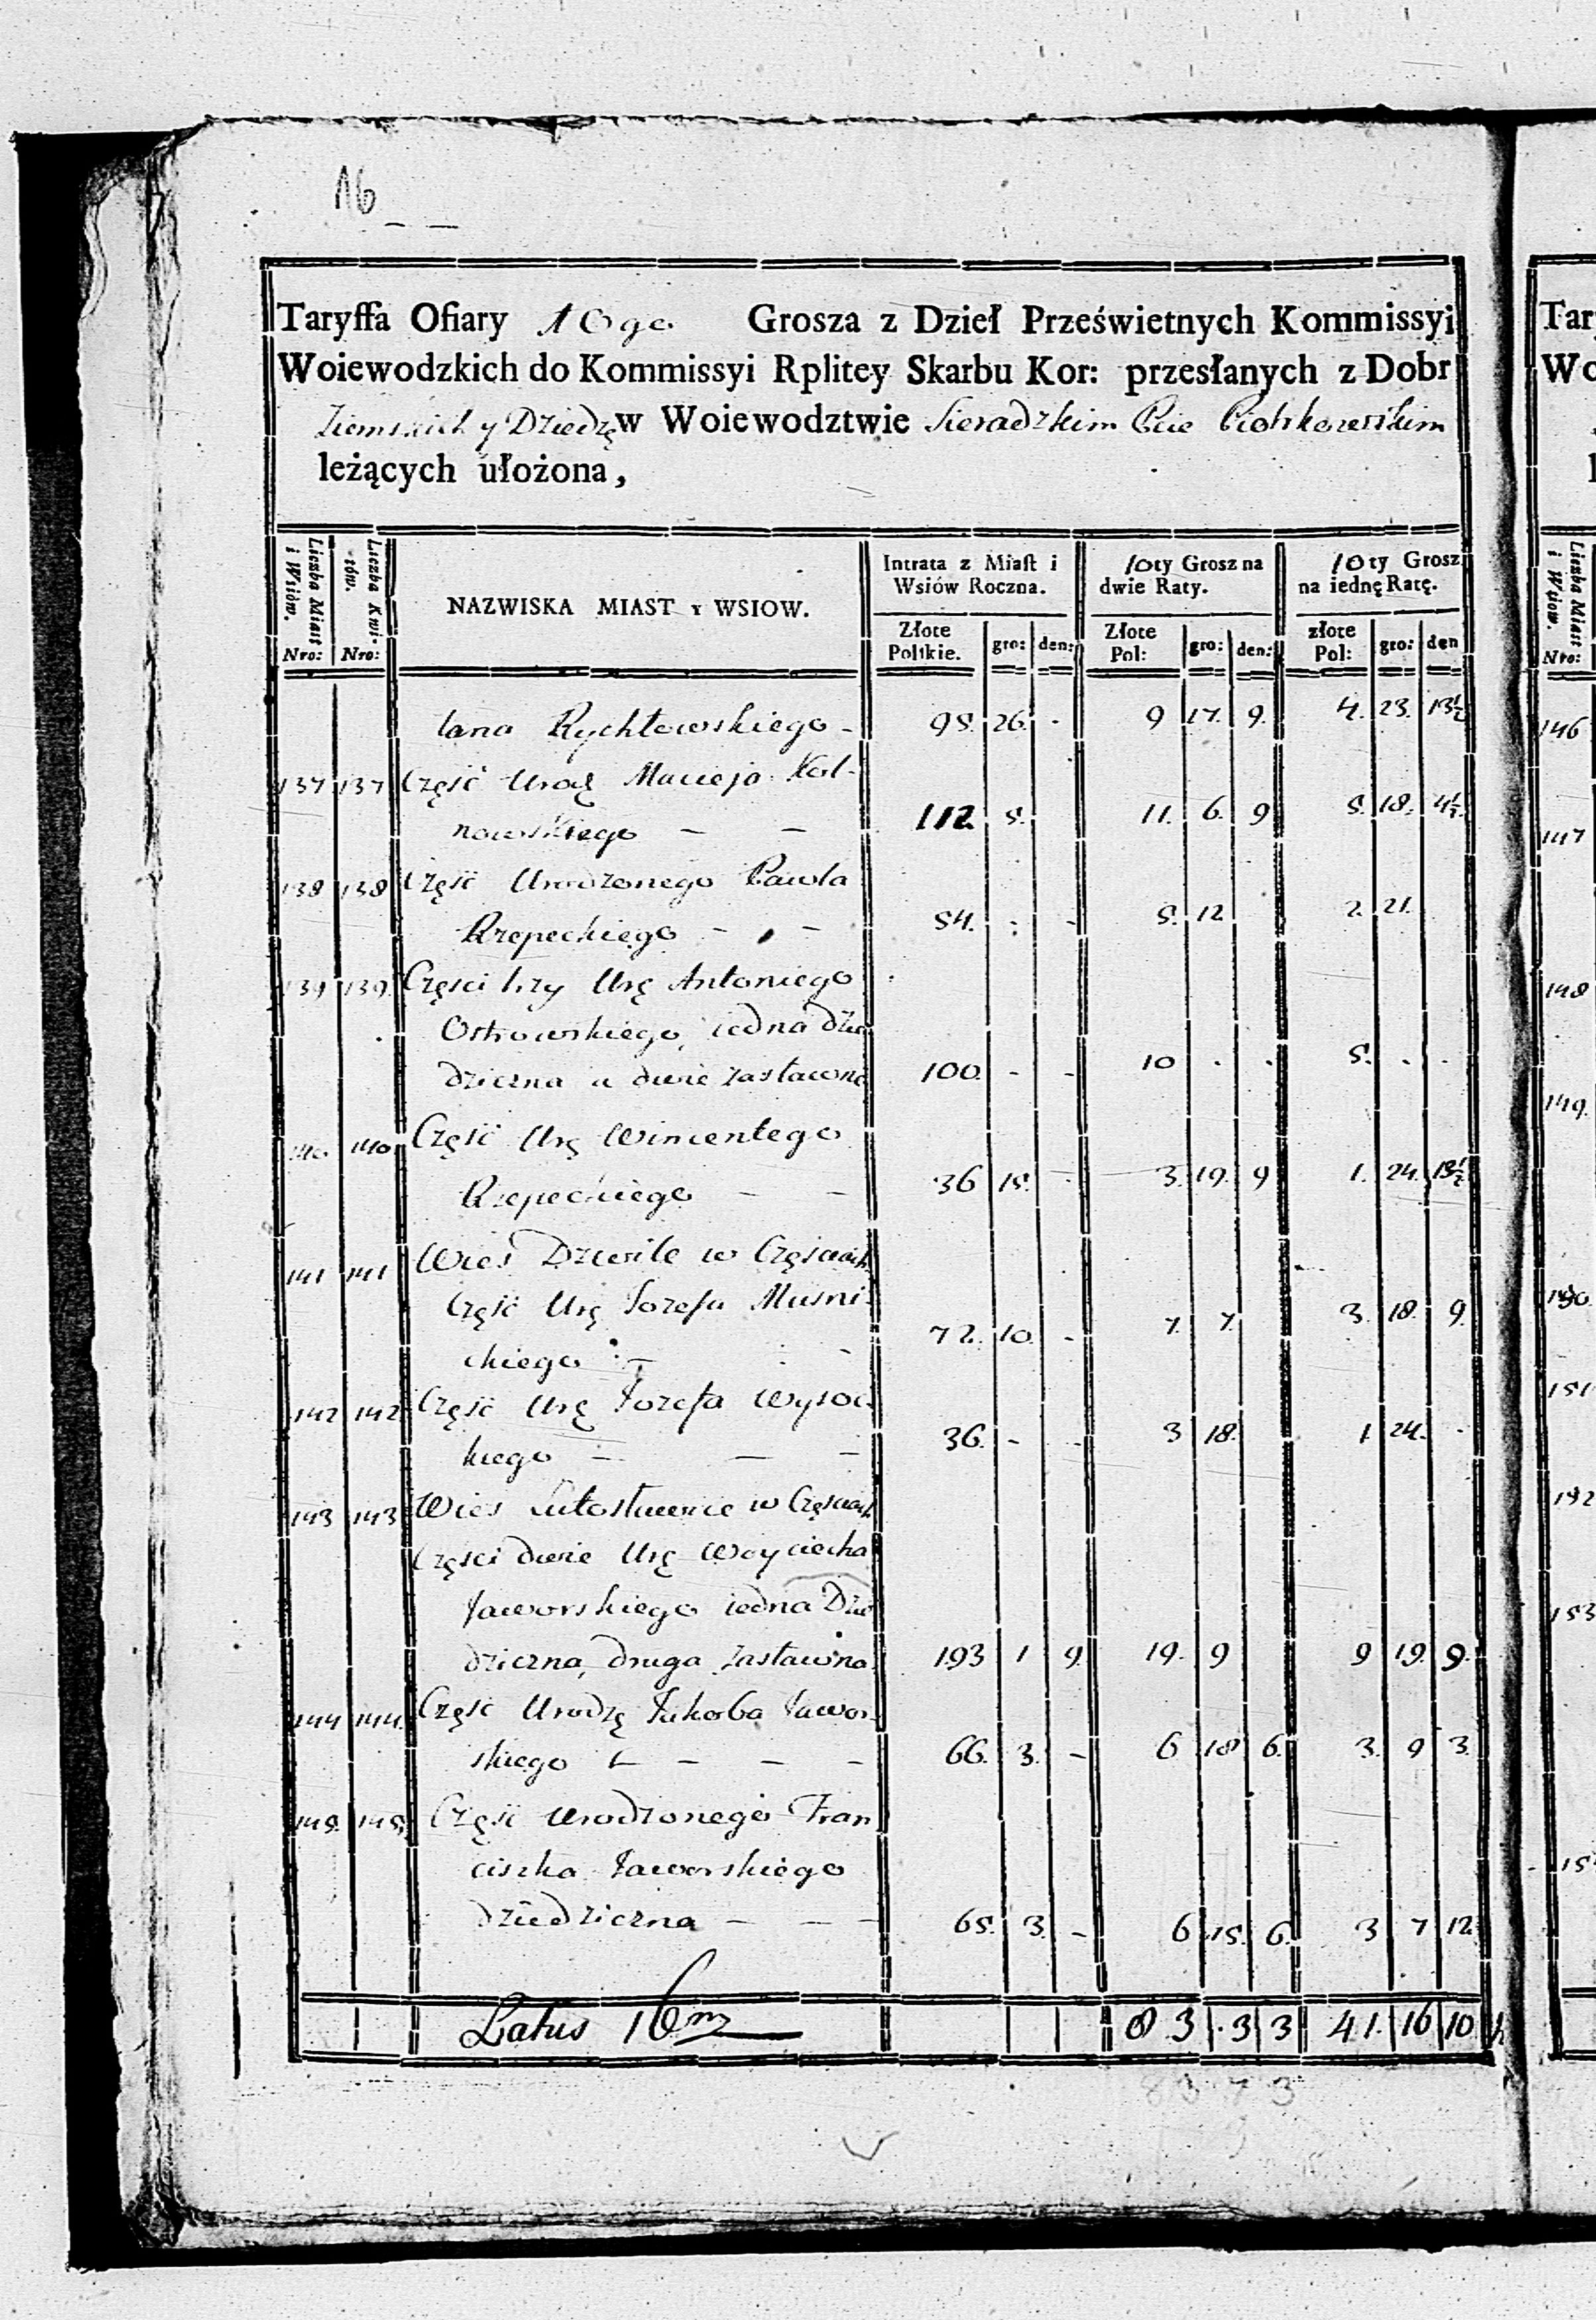 16
Taryffa Ofiary 10go Grosza z Dzieł Prześwietnych Kommissyi
Woiewodzkich do Kommissyi Rplitey Skarbu Kor: przesłanych z Dobr
Ziemskich y Dziedz w Woiewodztwie Sieradzkim Pcie Piotrkowskim
leżących ułożona,
Liczba Miast i Wsiów. Nro: Liczba Kwi-tów. Nro: NAZWISKA MIAST Y WSIOW. Intrata z Miast i Wsiów Roczna. 10ty Grosz na dwie Raty. 10ty Grosz na iednę Ratę.
Złote Polskie. gro: den: Złote Pol: gro: den: złote Pol: gro: den
Iana Rychłowskiego - 95. 26. - 9 17. 9. 4. 23. 13½
137 137 Część Urodz Macieja Kal-
nowskiego - - 112. 5. 11. 6. 9 5. 18. 4½.
138 138 Część Urodzonego Pawła
Rzepeckiego - - 54. - - 5. 12 2. 21.
139 139. Części trzy Urę Antoniego
Ostrowskiego, iedna dzie
dziczna a dwie zastawne 100. - - 10 - - 5. - -
140 140 Część Urę Wincentego
Rzepeckiego - - 36 15. - 3. 19. 9 1. 24. 13½
141 141 Wieś Dziwle w Częściach
Część Urę Iozefa Muśni-
ckiego - - 72. 10. - 7. 7. 3. 18. 9.
142 142 Część Urę Iozefa Wysoc-
kiego - - - 36. - - 3 18. 1 24. -
143 143 Wieś Lutosławice w Częściach
Części dwie Urę Woyciecha
Jaworskiego iedna Dzie
dziczna, druga zastawna 193 1 9. 19. 9 9 19. 9.
144 144. Część Urodzę Jakoba Jawor-
skiego - - - 66. 3. - 6 18 6. 3. 9 3.
145. 145. Część Urodzonego Fran
ciszka Jaworskiego
dziedziczna - - - 65. 3. - 6 15. 6. 3 7 12
Latus 16m 83. 3 3 41. 16 10